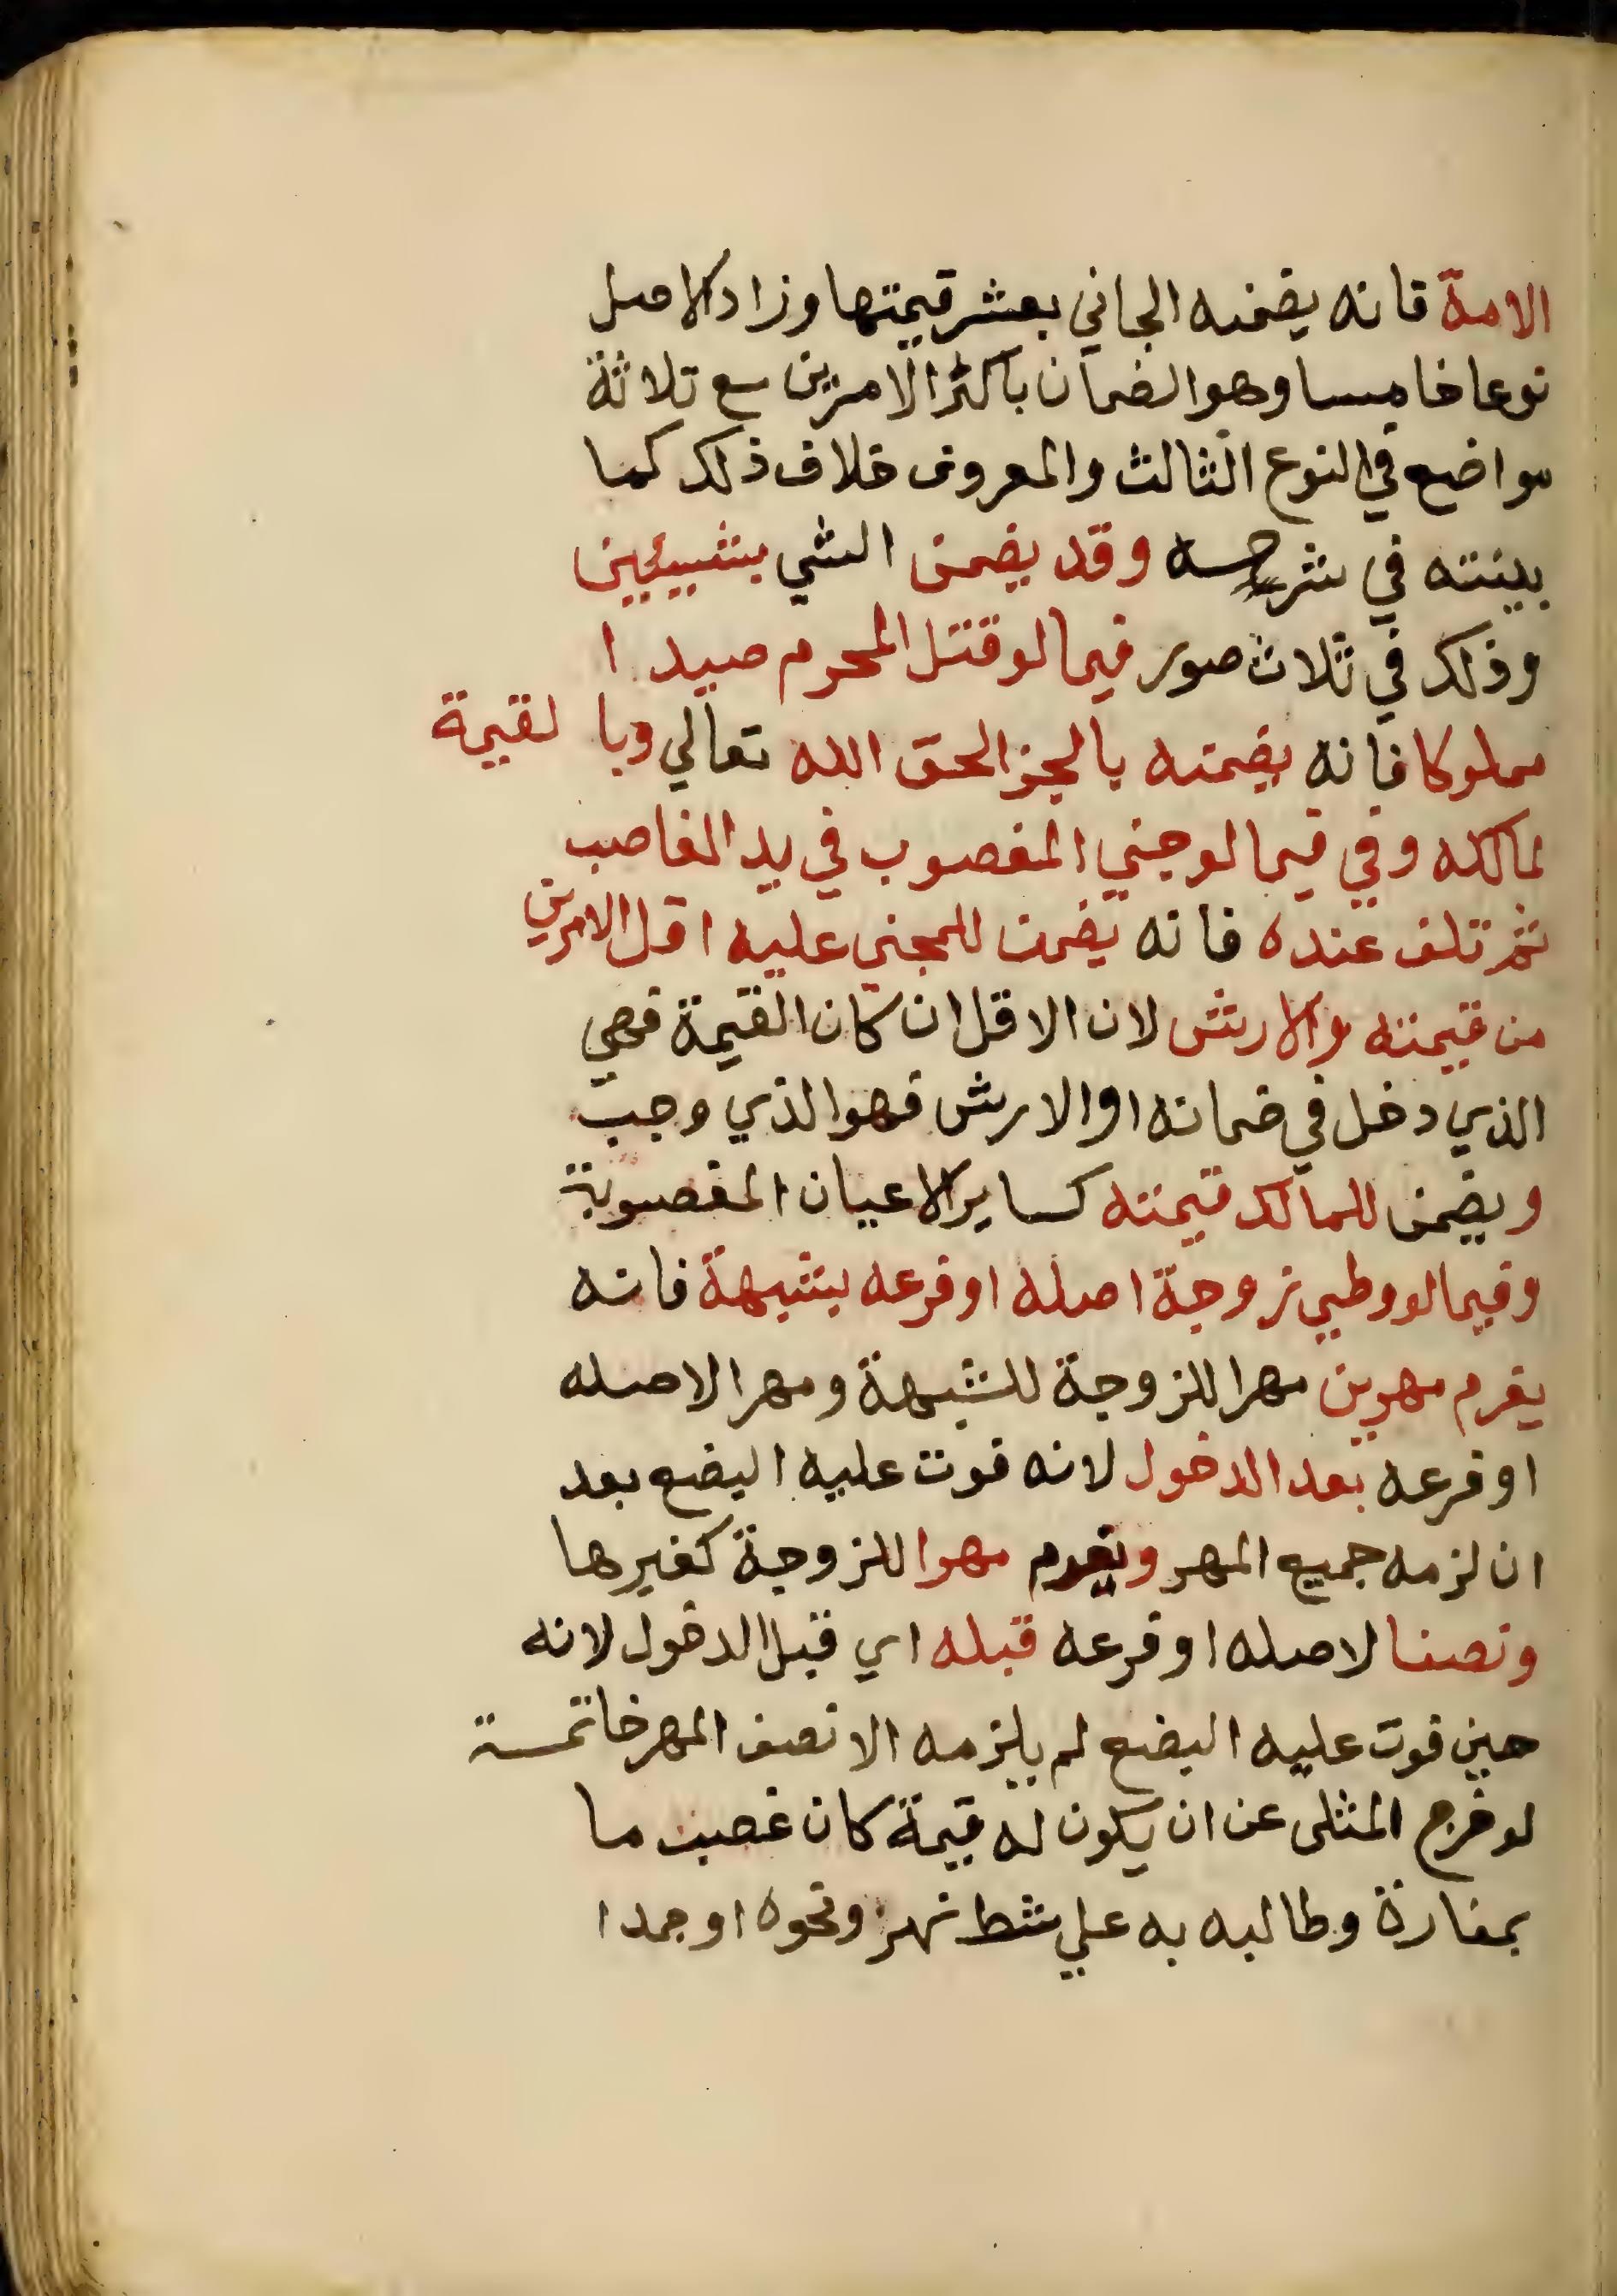 الامة فانه يضمنه الجاني بعشر قيمتها وزاد الاصل
نوعا خامسا وهو الضمان باكثر الامرين مع ثلاثة
مواضع في النوع الثالث والمعروف خلاف ذلك كما
بينته في شرحه وقد يضمن الشي بشييين
وذلك في ثلاث صور فيما لو قتل المحرم صيدا
مملوكا فانه يضمنه بالجزا لحق الله تعالي وبالقيمة
لمالكه وفي فيما لو جني المغصوب في يد الغاصب
ثم تلف عنده فانه يضمن للمجني عليه اقل الامرين
من قيمته والارش لان الاقل ان كان القيمة فهي
الذي دخل في ضمانه او الارش فهو الذي وجب
ويضمن للمالك قيمته كساير الاعيان المغصوبة
وفيما لو وطي زوجة اصله او فرعه بشبهة فانه
يغرم مهرين مهرا للزوجة للشبهة ومهرا لاصله
او فرعه بعد الدخول لانه فوت عليه البضع بعد
ان لزمه جميع المهر ويغرم مهرا للزوجة كغيرها
ونصفا لاصله او فرعه قبله اي قبل الدخول لانه
حين فوت عليه البضع لم يلزمه الا نصف المهر خاتمة
لو خرج المثلى عن ان يكون له قيمة كان غصب ما
بمفازة وطالبه به علي شط نهر ونحوه او جمدا